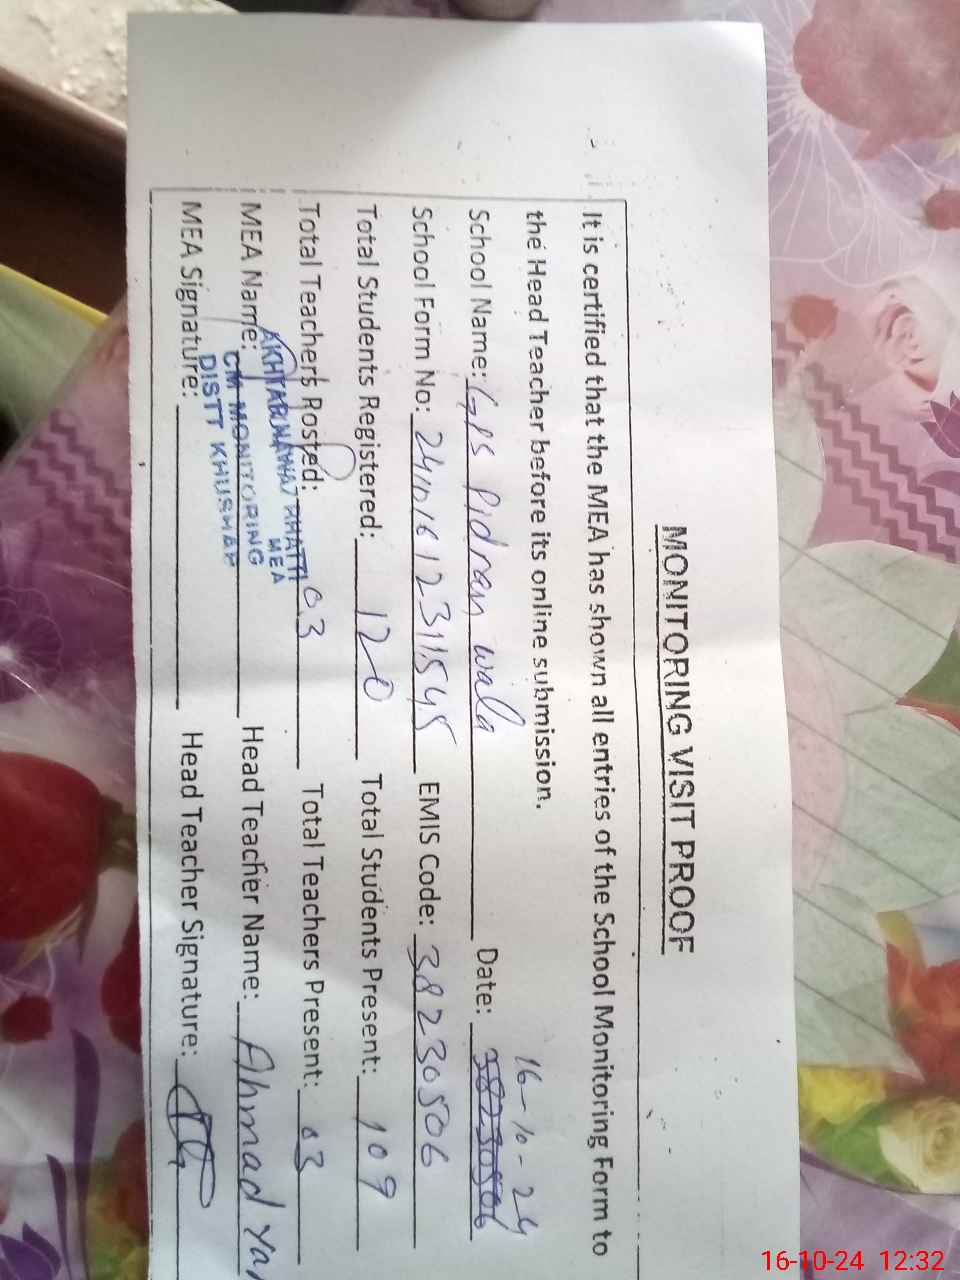 MONITORING VISIT PROOF
It is certified that the MEA has shown all entries of the School Monitoring Form to
the Head Teacher before its online submission.
School Name: GPS Pidran wala Date: 16-10-24
School Form No: 241016 12311545 EMIS Code: 38230506
Total Students Registered: 120 Total Students Present: 109
Total Teachers Rosted: 03 Total Teachers Present: 03
MEA Name: AKHTAR NAWAZ BHATTI Head Teacher Name: Ahmad Yar
MEA
CM MONITORING
DISTT KHUSHAB
MEA Signature: Head Teacher Signature:
16-10-24 12:32